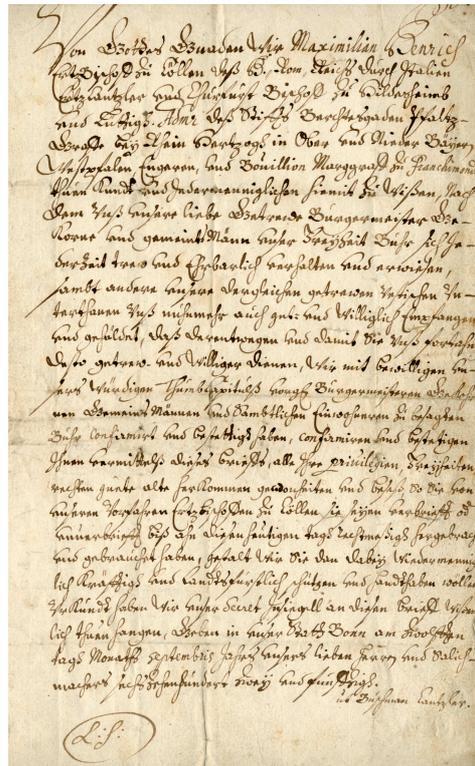 Von Gottes Gnaden Wir Maximilian Henrich
ErtzBischoff zu Cöllen deß H. Röm. Reichs durch Italien
Ertzcantzler und Churfürst Bischoff zu Hildesheimb
und Lüttig, Admr deß Stiffts Berchtesgaden Pfaltz-
Graffe bey Rhein Hertzogh in Ober und Nieder Bäyern
Westphalen, Engeren, und Bouillion Marggraff zu Franchimond
thuen kundt und Jedermenniglichen hiemit zu wißen, Nach
dem Unß unsere liebe Getrewe Bürgermeister Ge-
Korne und gemeine Männ unser Freyheit Buhr sich Je-
derzeit trew und Ehrbarlich verhalten und erwiesen,
sambt andere unsere dergleichen getrewen Un-
terthanen Unß nuhnmehr auch gut und williglich Empfangen
und gehuldet, daß derentwegen und damit sie Unß fortahn
desto getrew- und williger dienen, Wir mit bewilligen Un-
sers würdigen Thumbcapituls Bürgermeisteren
nen Gemeine Mannen und sambtlichen Einwohneren zu besagten
Buhr confirmirt und bestettigt haben, confirmiren und bestetigen
Ihnen vermittelst dieses brieffs, alle Ihre privilegien, Freyheiten
rechten guete alte herkommen gewonheiten und besitz so sie von
unseren Vorfahren Ertzbischoffen zu Cöllen sie seyen verbriefft od
unverbrieft biß ahn diesen heutigen tagh rechtmeßigh hergebracht
und gebrauchet haben, gestalt Wir Sie dan dabey
lich Kräfftigh und Landtsfürstlich schützen und handthaben wollen
Urkundt haben Wir unser Secret Insiegell an diesen brieff
lich thuen hangen, Geben in unser Statt Bonn am Zwolfften
tagh Monaths Septembris Jahrs unsers lieben Herren und Salich-
machers sechszehenhundert zwey und funfftzigh.
ut Buschman Cantzler.
L: S: